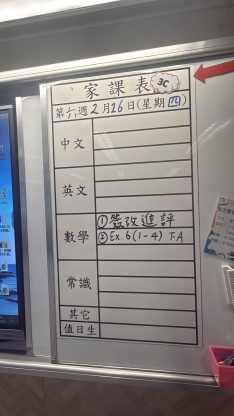 家課表 3C
第六週2月26日(星期四)
中文
英文
數學 ①簽改進評
②Ex.6(1-4) T.A
常識
其它
值日生